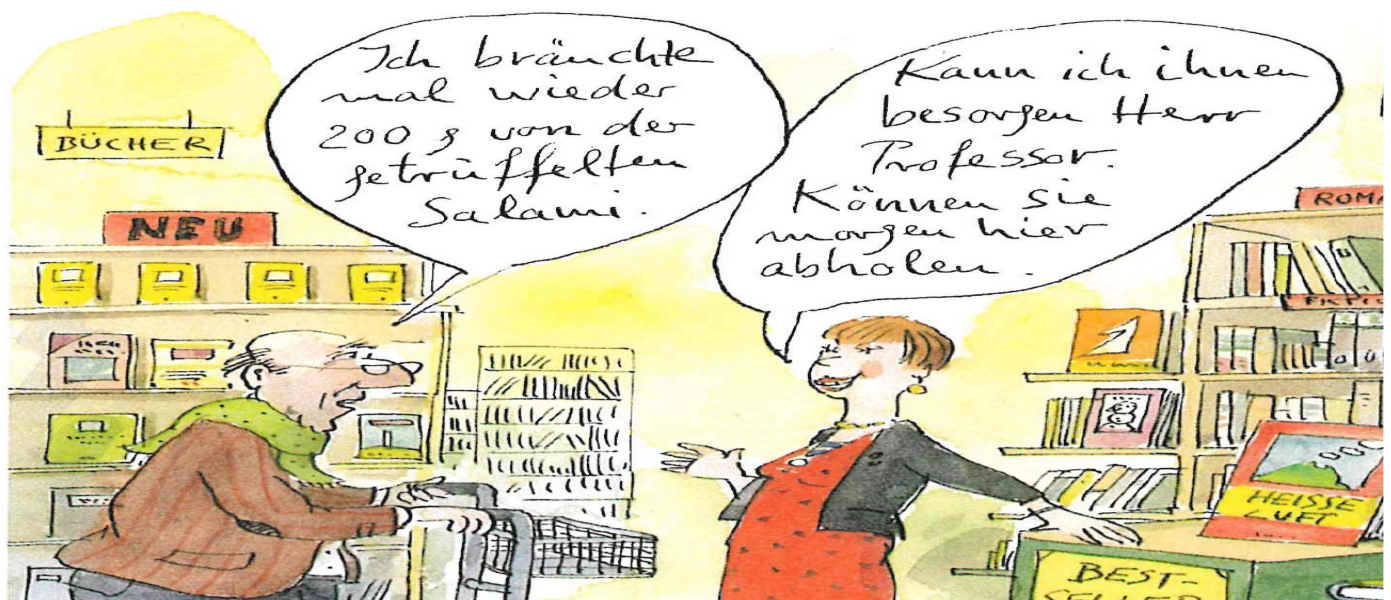 Ich bräuchte
mal wieder
200 g von der
getrüffelten
Salami.
Kann ich ihnen
besorgen Herr
Professor.
Können sie
morgen hier
abholen.
BÜCHER
NEU
ROMA
HEISSE
LUFT
BEST-
SELLER